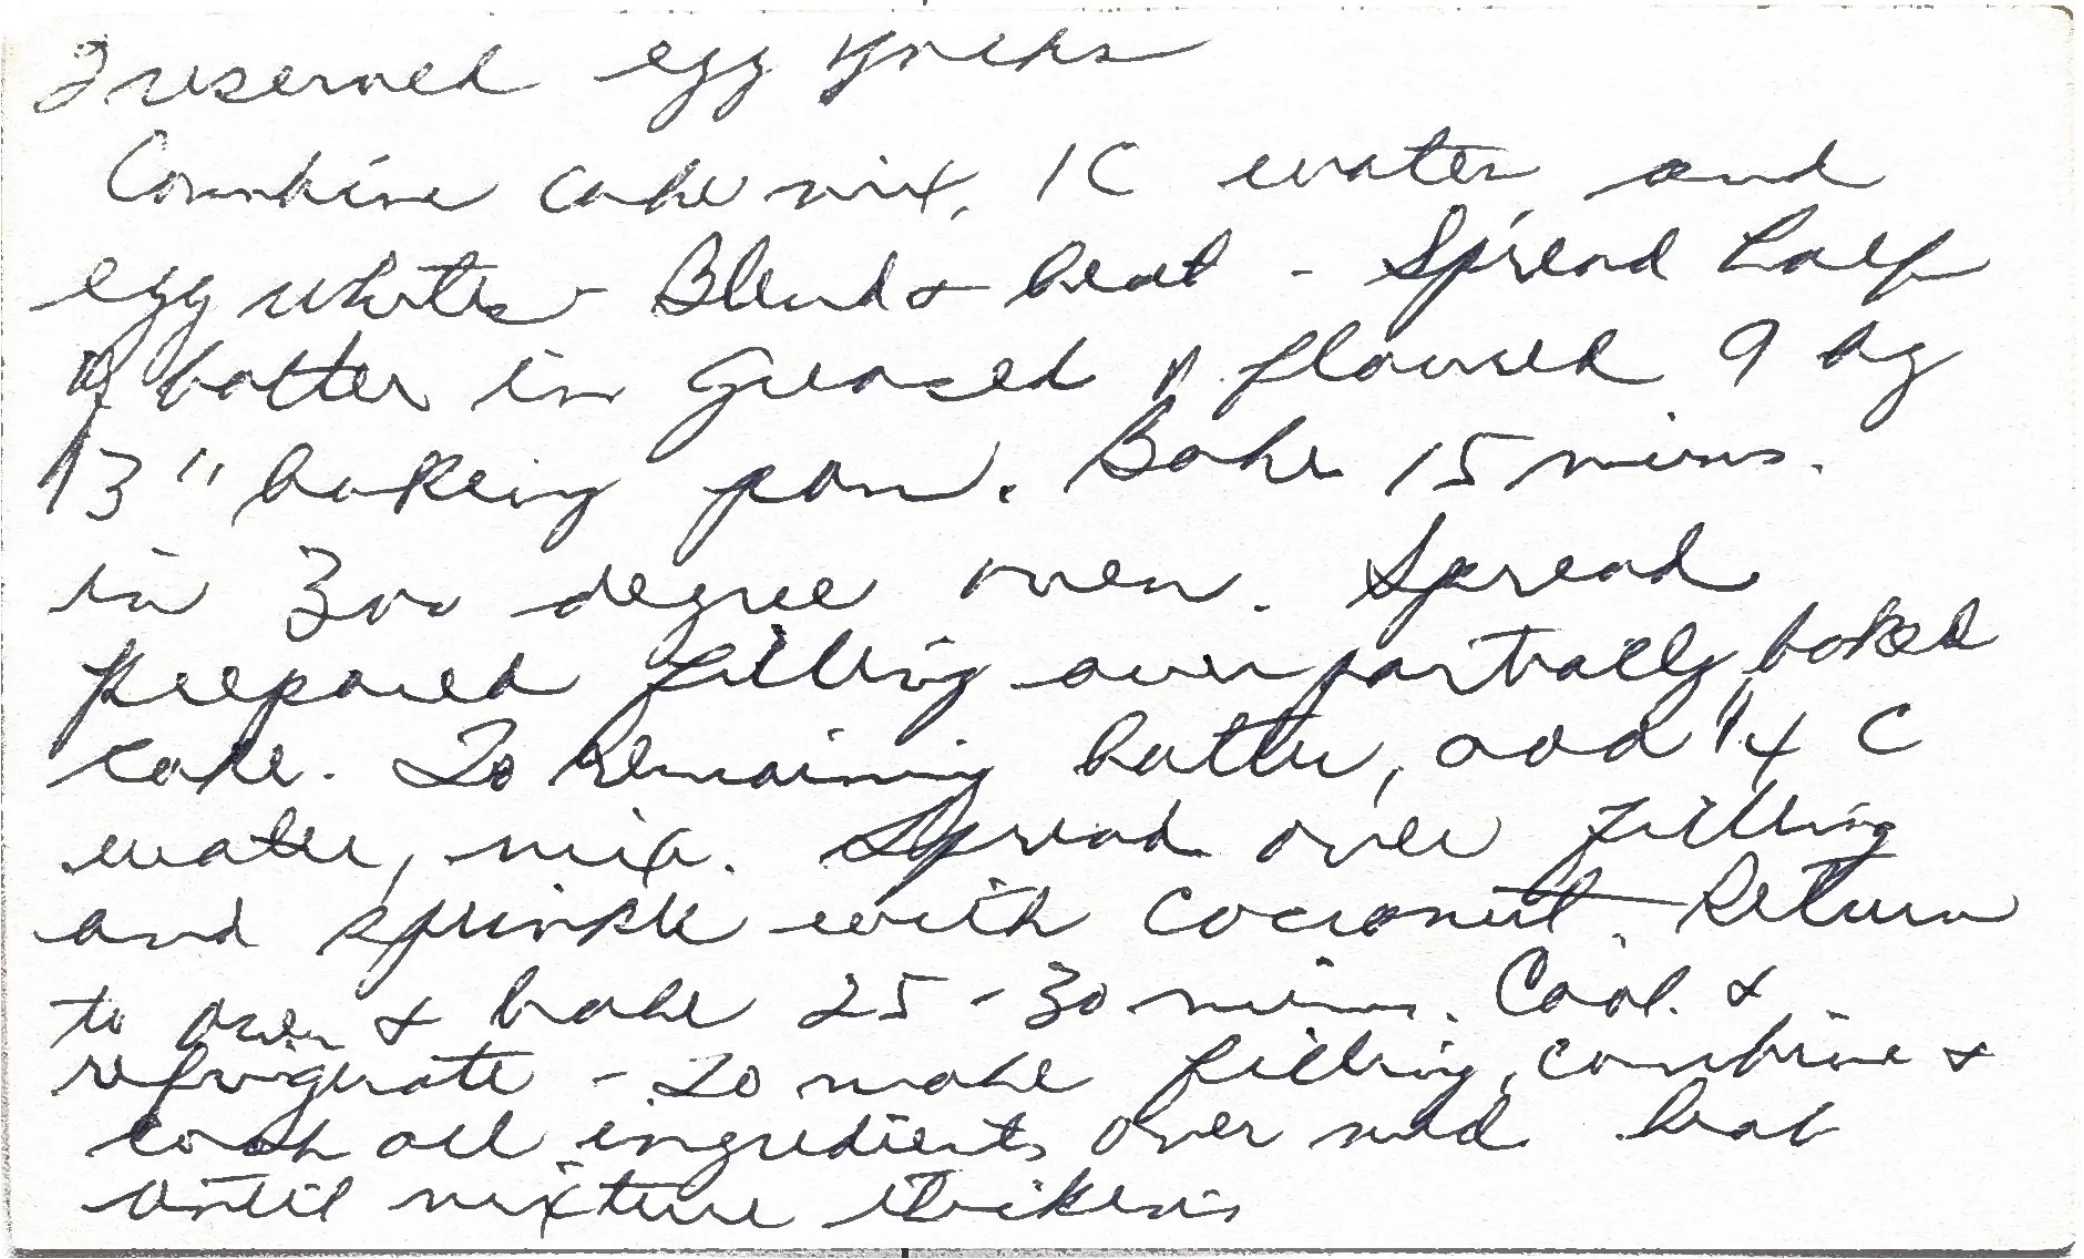 2 reserved egg yolks
Combine cake mix, 1 C water, and
egg whites - Blend & beat - Spread half
of batter in greased & floured 9 by
13" baking pan. Bake 15 mins.
in 300 degree oven. Spread
prepared filling over partially baked
cake. To remaining batter, add 1/4 C
water, mix. Spread over filling
and sprinkle with coconut. Return
to oven & bake 25-30 mins. Cool &
refrigerate - To make filling, combine &
cook all ingredients over med heat
until mixture thickens